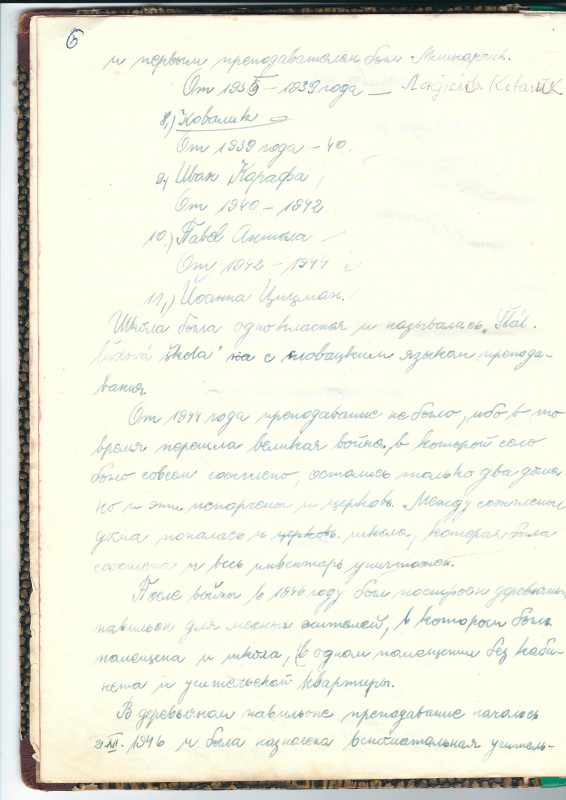 6
и первым преподавателем был
От 1935 – 1939 года —
8.) Ковалик
От 1939 года – 40.
9.) Иван Карафа
От 1940 – 1942
10.) Павел Антола
От 1942 – 1944
11.) Иоанна Цицман.
Школа была одноклассная и называлась „Štát.
ľudová škola" на с словацким языком препода-
вания.
От 1944 года преподавание не было, ибо в то
время перешла великая война, в которой село
было совсем сожжено, остались только два дома
но и эти испорчены и церковь. Между сожженые
дома попалась и церковь школа, которая была
сожжена и весь инвентарь уничтожен.
После войны в 1946 году был построен деревянный
павильон для местных жителей, в котором была
помещена и школа, (в одном помещении без каби-
нета и учительской квартиры.
В деревянном павильоне преподавание началось
1946 и была назначена вспомогательная учитель-